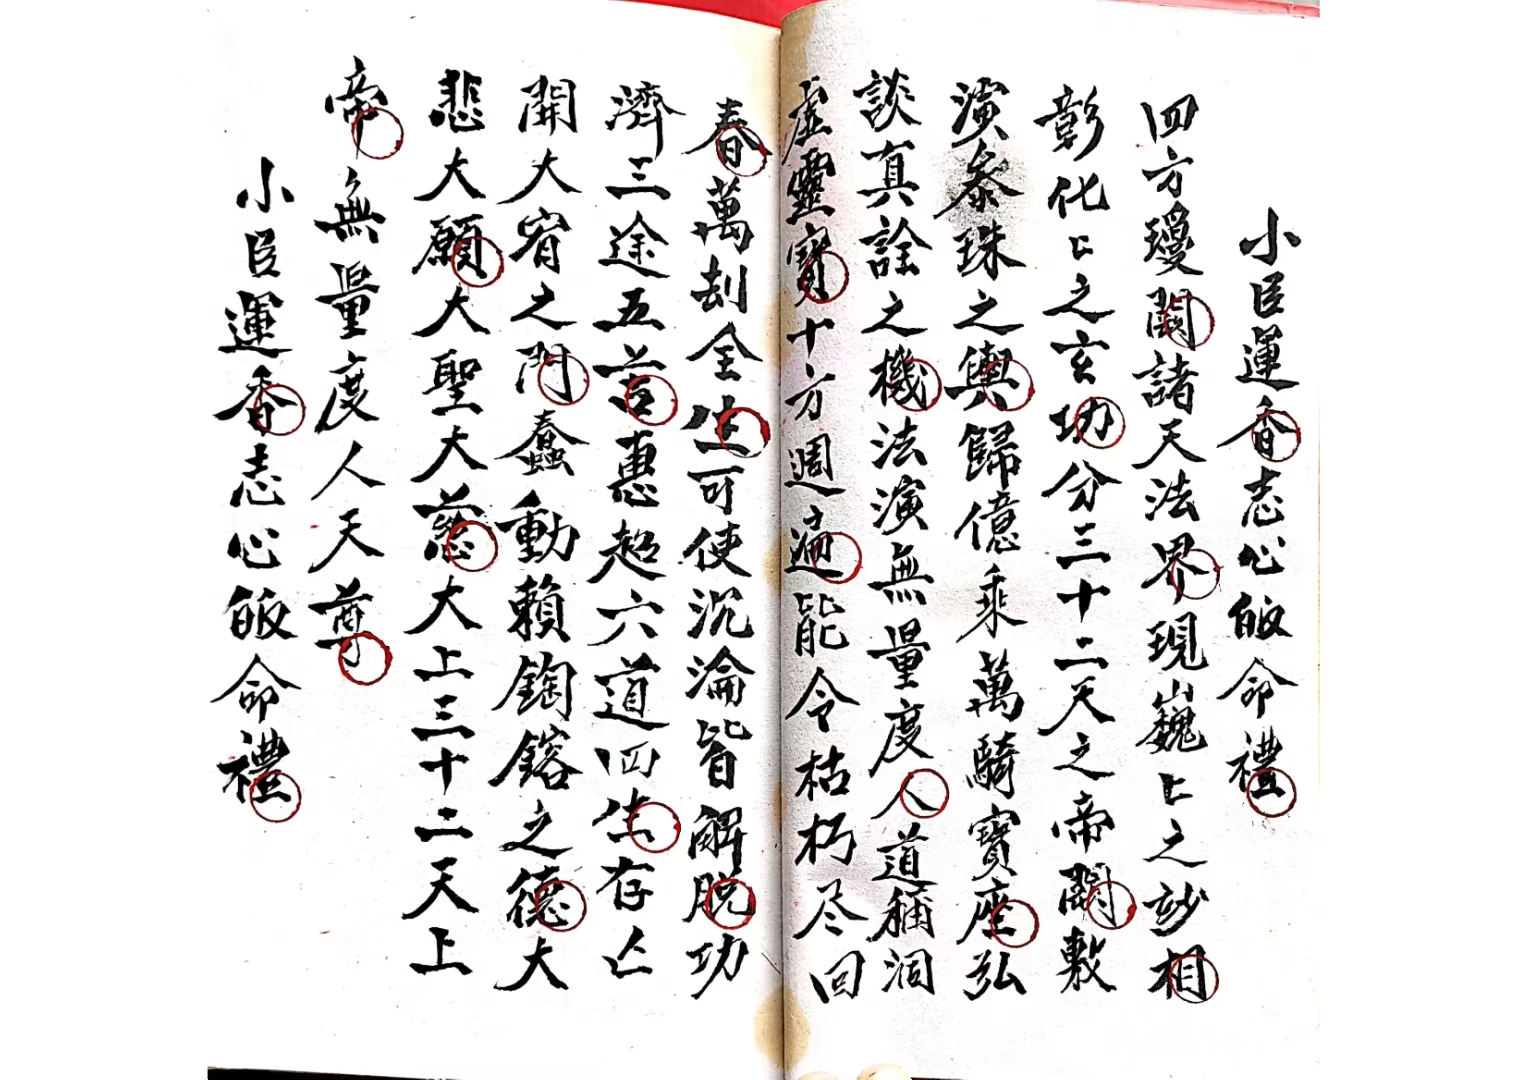 小臣運香志心皈命禮
四方瓊闕諸天法界現巍〻之妙相
彰化〻之玄功分三十二天之帝闕敷
演黍珠之輿歸億乘萬騎寶座弘
談真詮之機法演無量度人道稱洞
虛靈寶十方週遍能令枯朽尽回
春萬刦全生可使沉淪皆解脫功
濟三途五苦惠超六道四生存亡
開大宥之門蠢動賴鎔之德大
悲大願大聖大慈大上三十二天上
帝無量度人天尊
小臣運香志心皈命禮